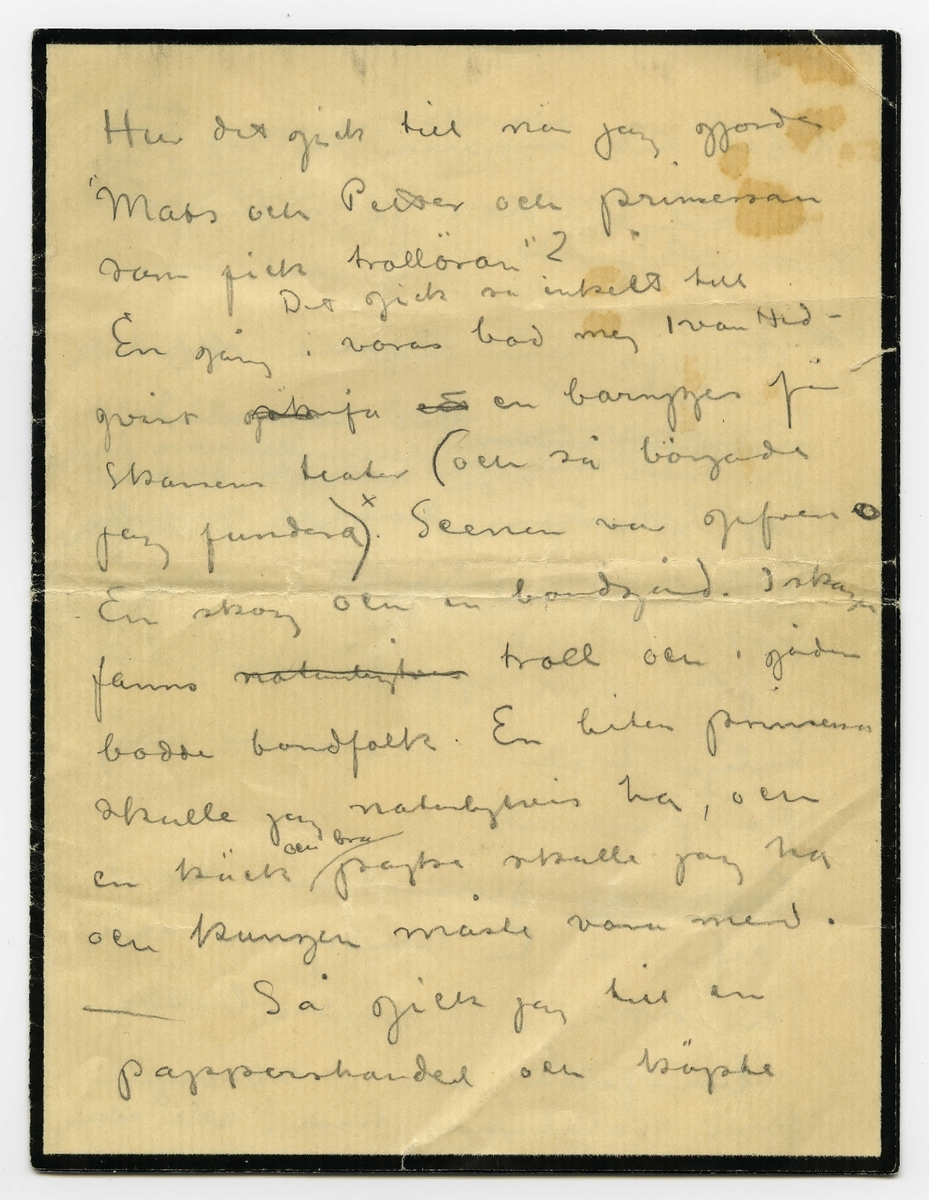 Hur det gick till när jag gjorde
"Mats och Petter och prinsessan
som fick trollöron"?
Det gick så enkelt till
En gång i våras bad mig Ivar Hed-
qvist om en barnpjes för
Skansens teater (och så började
jag fundera)x. Scenen var gifven
En skog och en bondgård. I skogen
fanns naturligtvis troll och i gården
bodde bondfolk. En liten prinsessa
skulle jag naturligtvis ha, och
och bra
en käck pojke skulle jag ha
och kungen måste vara med.
— Så gick jag till en
pappershandel och köpte